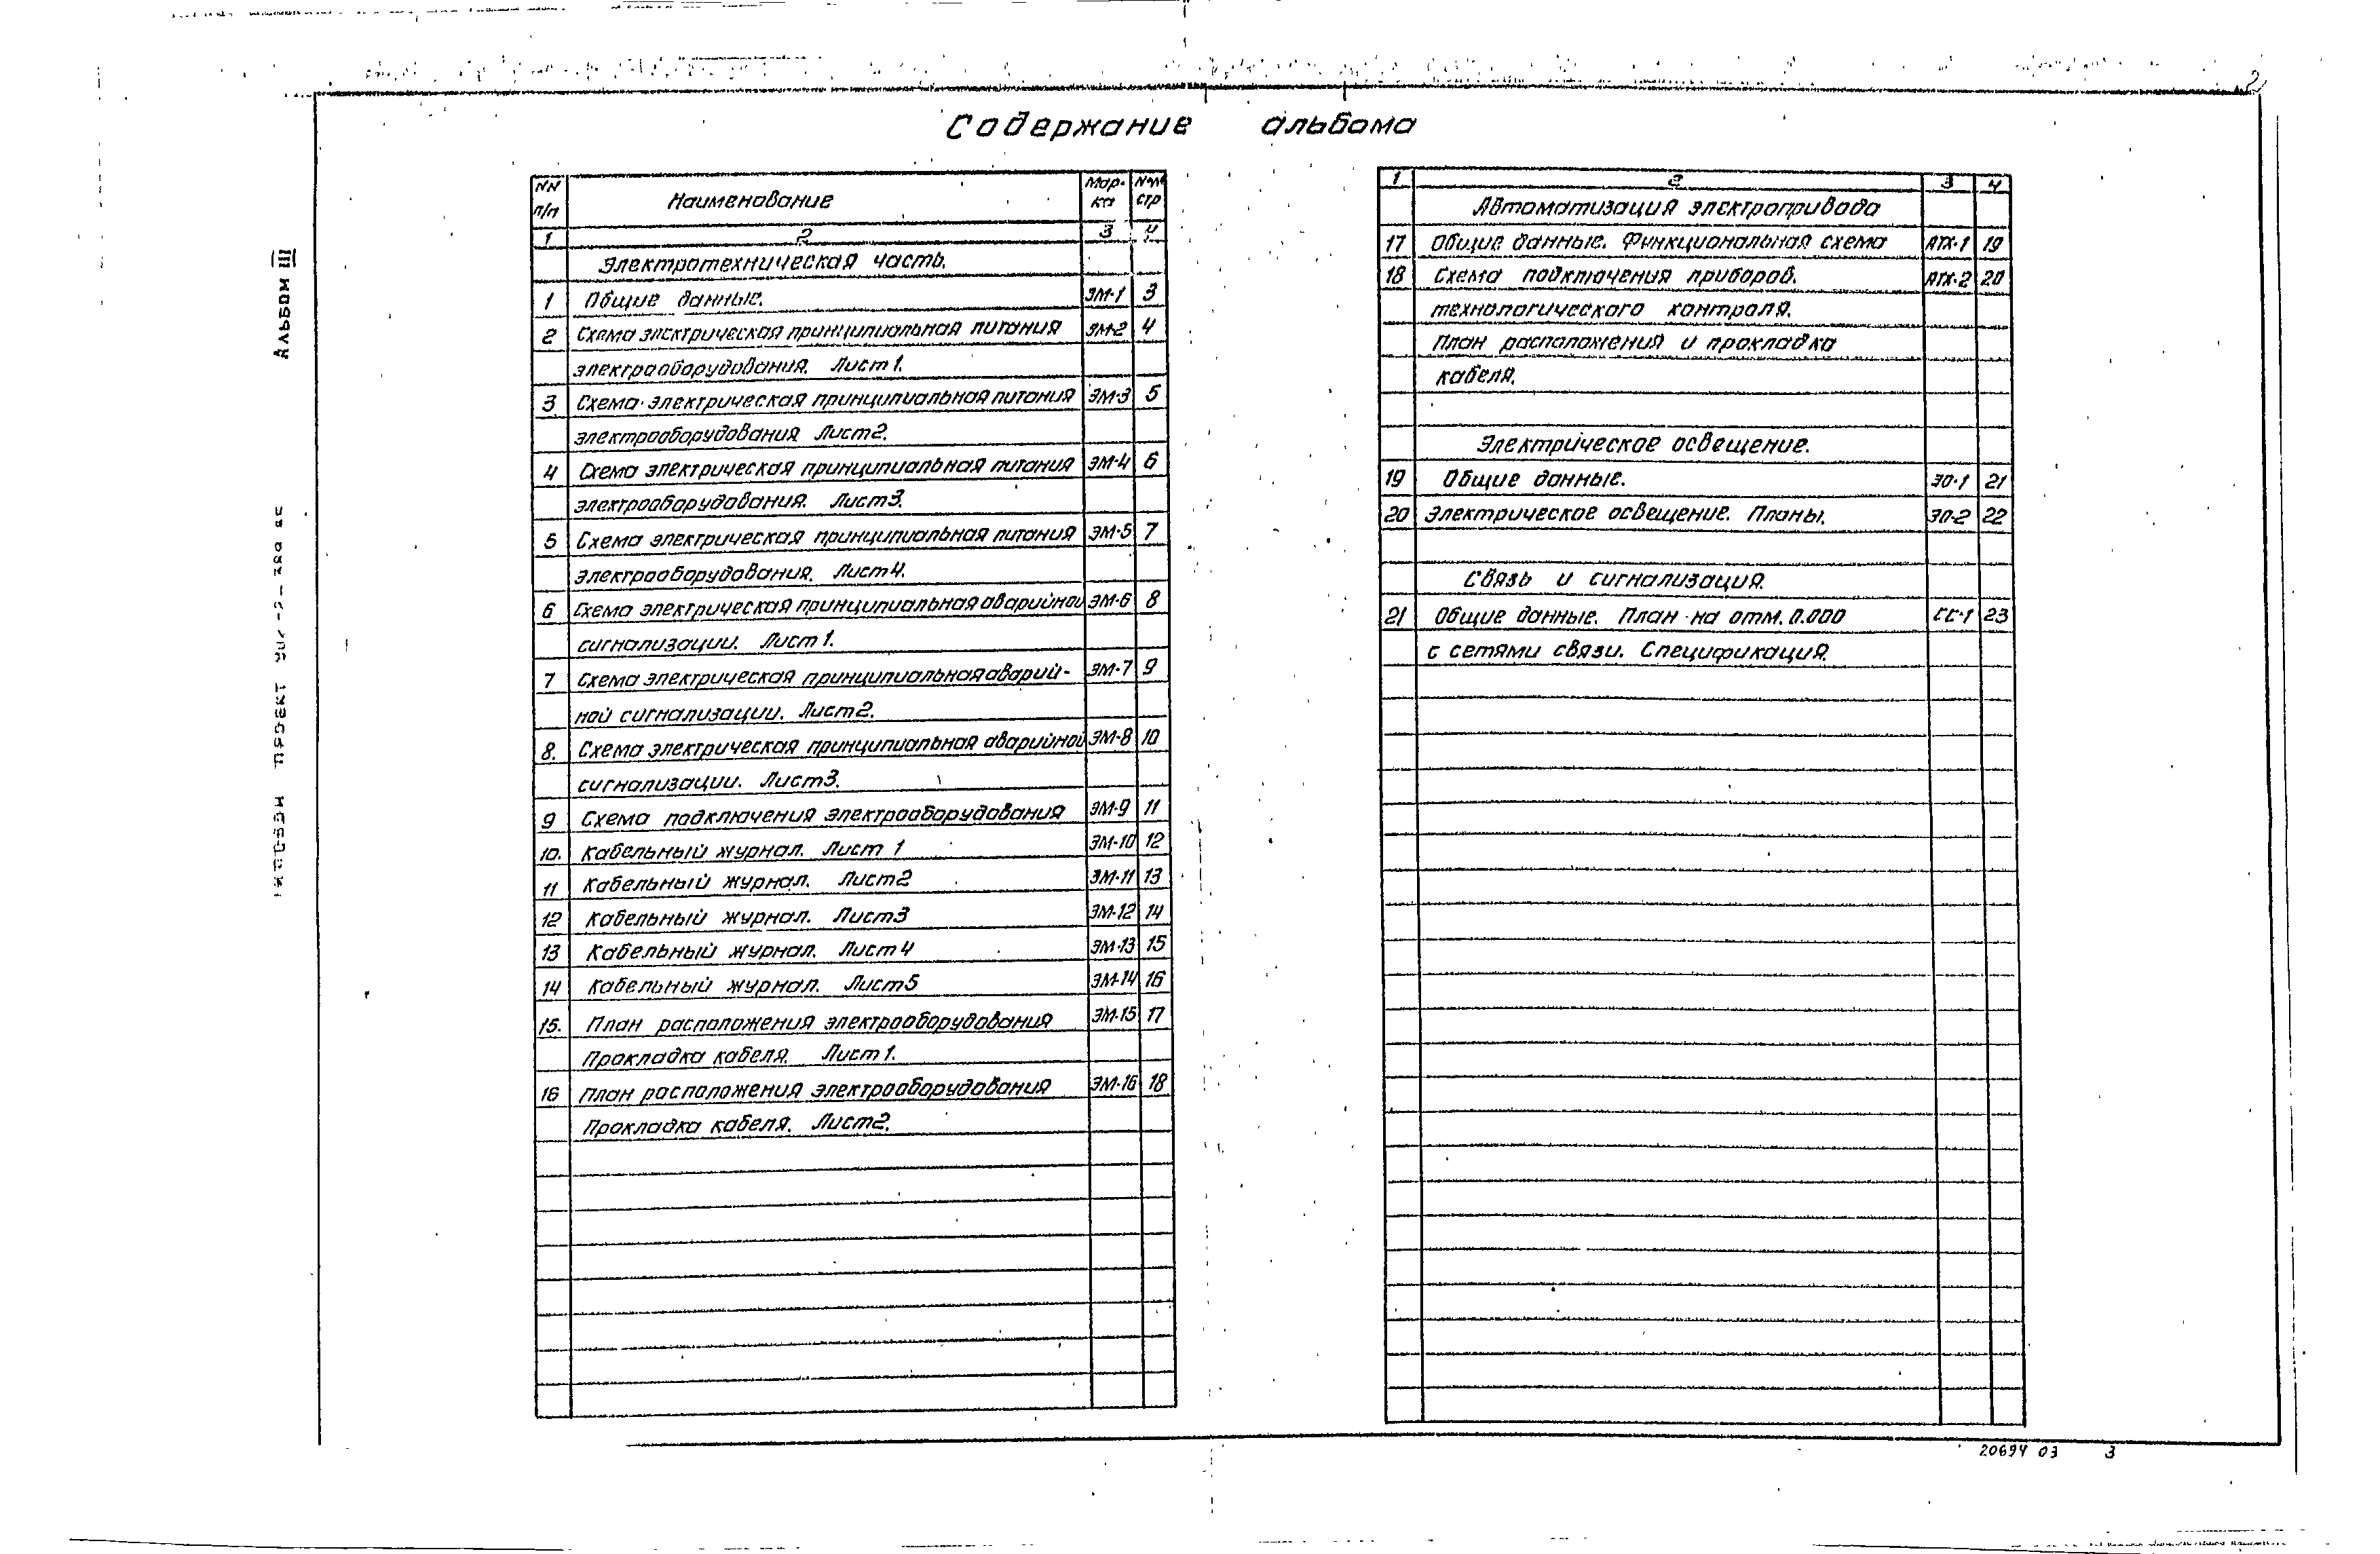 2
Содержание альбома
Альбом III
NN п/п Наименование Мар-ка NN стр
1 2 3 4
Электротехническая часть.
1 Общие данные. ЭМ-1 3
2 Схема электрическая принципиальная питания ЭМ-2 4
электрооборудования. Лист 1.
3 Схема электрическая принципиальная питания ЭМ-3 5
электрооборудования Лист 2.
4 Схема электрическая принципиальная питания ЭМ-4 6
электрооборудования. Лист 3.
5 Схема электрическая принципиальная питания ЭМ-5 7
электрооборудования. Лист 4.
6 Схема электрическая принципиальная аварийной ЭМ-6 8
сигнализации. Лист 1.
7 Схема электрическая принципиальная аварий- ЭМ-7 9
ной сигнализации. Лист 2.
8. Схема электрическая принципиальная аварийной ЭМ-8 10
сигнализации. Лист 3.
9 Схема подключения электрооборудования ЭМ-9 11
10. Кабельный журнал. Лист 1 ЭМ-10 12
11 Кабельный журнал. Лист 2 ЭМ-11 13
12 Кабельный журнал. Лист 3 ЭМ-12 14
13 Кабельный журнал. Лист 4 ЭМ-13 15
14 Кабельный журнал. Лист 5 ЭМ-14 16
15. План расположения электрооборудования ЭМ-15 17
Прокладка кабеля. Лист 1.
16 План расположения электрооборудования ЭМ-16 18
Прокладка кабеля. Лист 2.
1 2 3 4
Автоматизация электропривода
17 Общие данные. Функциональная схема АТХ-1 19
18 Схема подключения приборов. АТХ-2 20
технологического контроля.
План расположения и прокладка
кабеля.
Электрическое освещение.
19 Общие данные. ЭО-1 21
20 Электрическое освещение. Планы. ЭО-2 22
Связь и сигнализация.
21 Общие данные. План на отм. 0.000 СС-1 23
с сетями связи. Спецификация.
20694 03 3